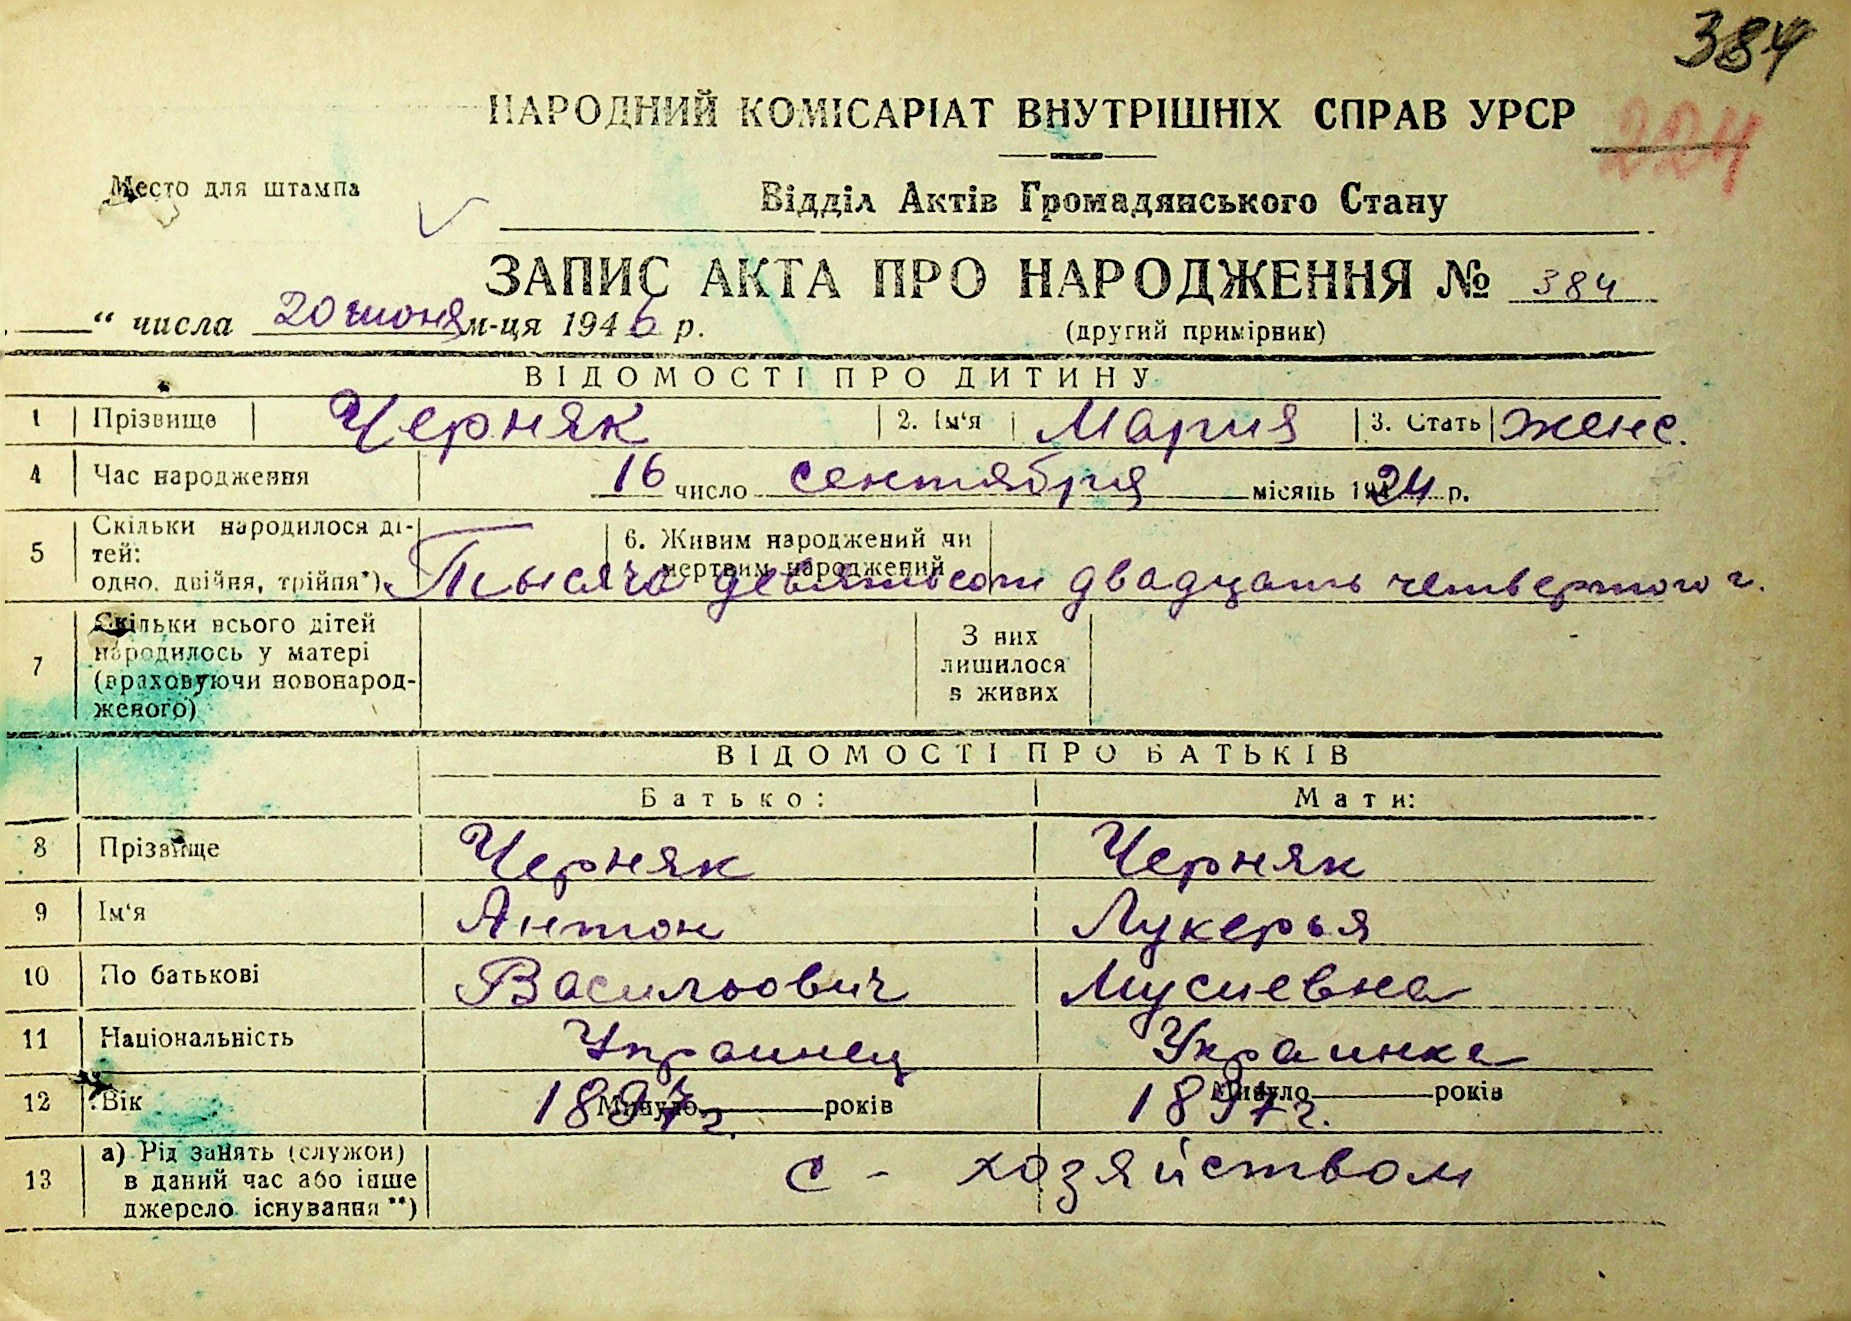 384
НАРОДНИЙ КОМІСАРІАТ ВНУТРІШНІХ СПРАВ УРСР
224
Место для штампа
Відділ Актів Громадянського Стану
ЗАПИС АКТА ПРО НАРОДЖЕННЯ № 384
“ числа 20 июня м-ця 1946 р.
(другий примірник)
ВІДОМОСТІ ПРО ДИТИНУ
1 Прізвище Черняк 2. Ім‘я Мария 3. Стать женс.
4 Час народження 16 число сентября місяць 1924 р.
5 Скільки народилося дітей: одно, двійня, трійня*) 6. Живим народжений чи мертвим народжений
Тысяча девятьсот двадцать четвертого г.
7 Скільки всього дітей народилось у матері (враховуючи новонародженого) З них лишилося в живих
ВІДОМОСТІ ПРО БАТЬКІВ
Батько: Мати:
8 Прізвище Черняк Черняк
9 Ім‘я Антон Лукерья
10 По батькові Васильович Мусиевна
11 Національність Украинец Украинка
12 Вік Минуло років 1897г. Минуло років 1897г.
13 а) Рід занять (служби) в даний час або інше джерело існування**) с - хозяйством